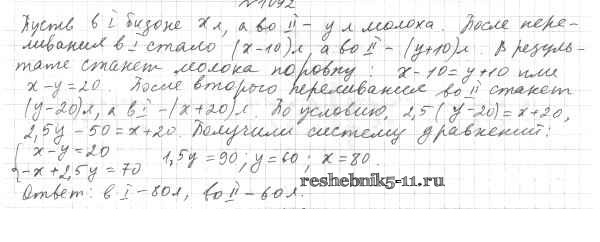 № 1092
Пусть в I бизоне x л, а во II – y л молока. После пере-
ливания в I стало (x-10) л, а во II – (y+10) л. В резуль-
тате станет молока поровну: x-10=y+10 или
x-y=20. После второго переливания во II станет
(y-20) л, а в I – (x+20) л. По условию, 2,5(y-20)=x+20,
2,5y-50=x+20. Получили систему уравнений:
{ x-y=20
-x+2,5y=70 1,5y=90; y=60; x=80.
reshebnik5-11.ru
Ответ: в I – 80 л, во II – 60 л.